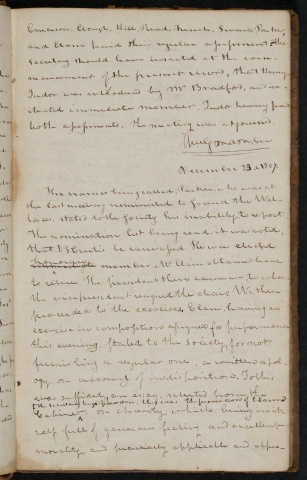 Emerson, Clough, Hill, Read, French, Parker,
and Clam paid their regular assessment the
secretary should have inserted at the com-
mencement of the present record, that Henry
Tudor was introduced by Mr Bradford, and in-
itiated immediate member. Tudor having paid
both assessments, the meeting was adjourned.
December 23d 1807.
The names being called, Parker, who was at
the last meeting nominated to sound the
stated to the Society his inability to report.
The nomination list being read, it was voted,
that be canvassed. He was elected
Honorary
immediate member. Mr Clam obtained leave
to retire. The president then came in, to whom
the vice president resigned the chair. We then
proceeded to the exercises. Clam, having an
exercise in composition assigned for performance
this evening, stated to the Society, for not
furnishing a regular one, a written apol-
ogy on account of indisposition. To this
was suffixed, an essay, selected from the
Cabinet, on charity, which being in it-
self full of generous feeling and excellent
morality, and peculiarly applicable and appro-